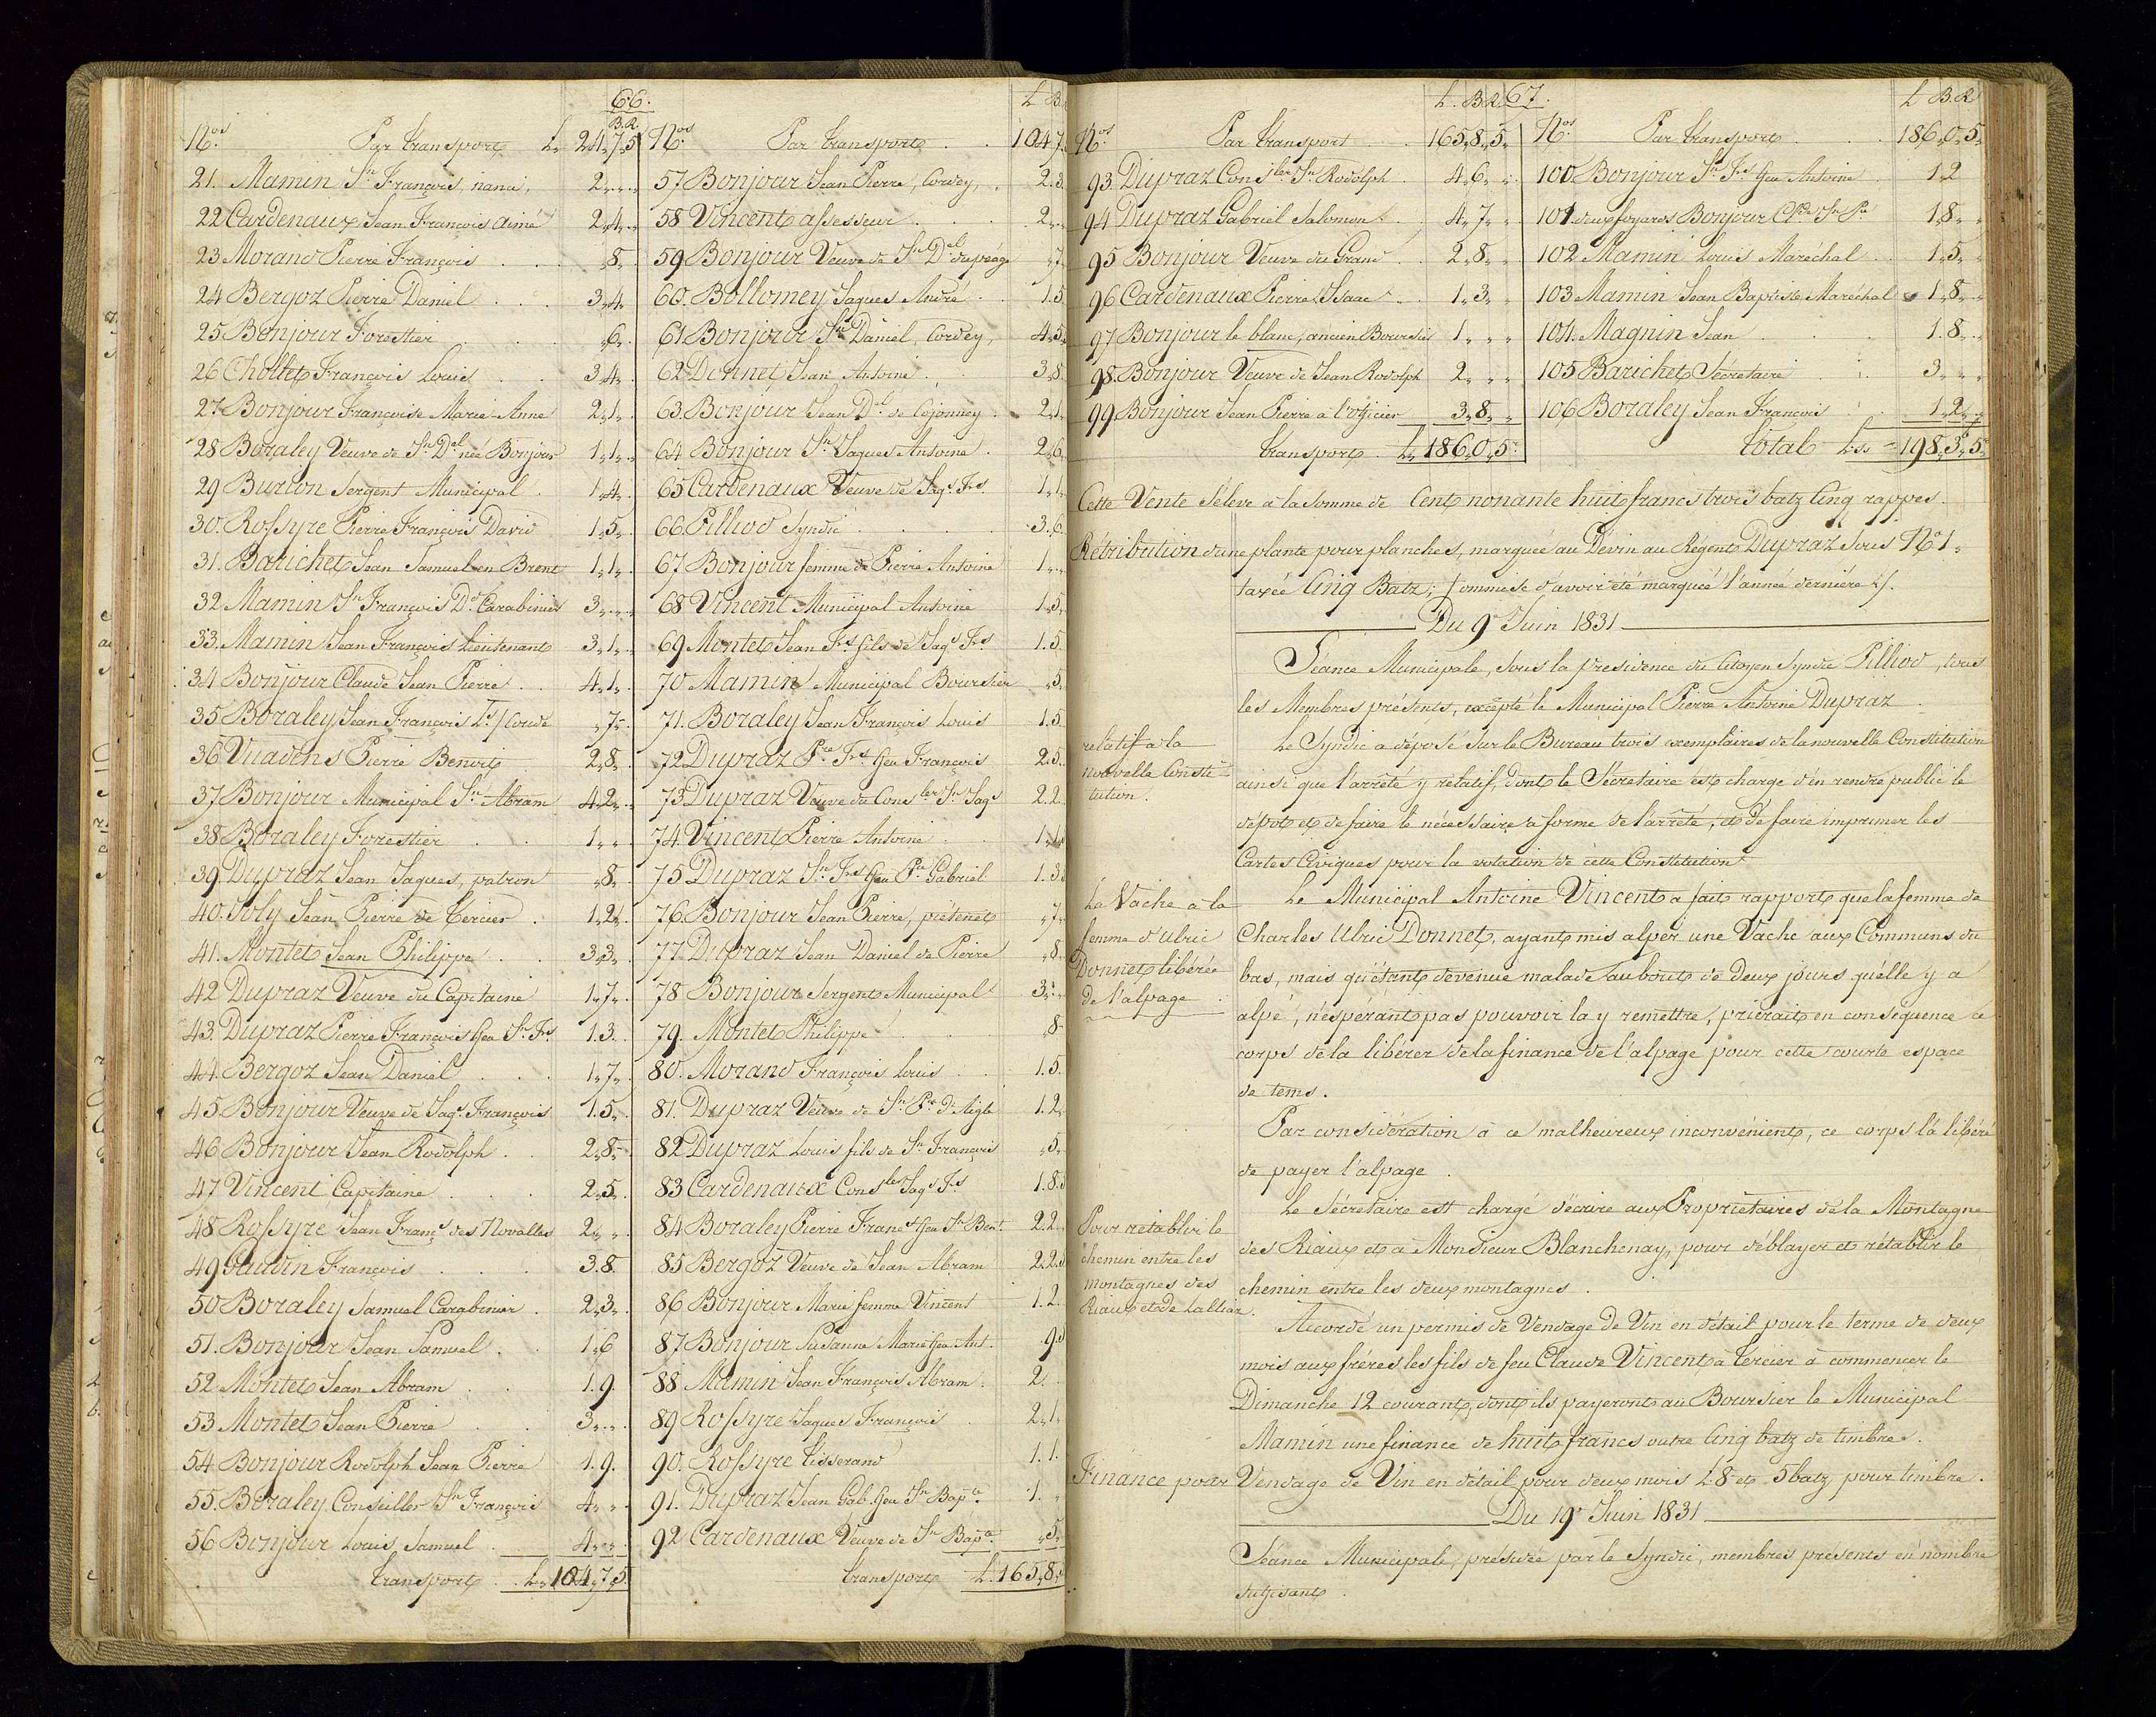 66.
B. R.
Nos. Par transport L. 24„7„5
21. Mamin Jn François, nanci, 2„„„
22 Cardenaux Jean François Aimé 2„4„
23 Morand Pierre François . . . „8„
24 Bergoz Pierre Daniel . . . 3„4„
25 Bonjour Forestier . . . „6„
26 Chollet François Louis . . 3„4„
27 Bonjour Françoise Marie Anne 2„1„
28 Boraley Veuve de Jn Del née Bonjour 1„1„
29 Burlon Sergent Municipal . 1„4„
30. Rossyre Pierre François David 1„5„
31. Barichet Jean Samuel en Brent 1„1„
32 Mamin Jn François Dd Carabinier 3„„„
33. Mamin Jean François Lieutenant 3„1„
34 Bonjour Claude Jean Pierre . . 4„1„
35 Boraley Jean François Ls / Corde „7„
36 Vuadens Pierre Benoit 2„8„
37 Bonjour Municipal Jn Abram 4„2„
38 Boraley Forestier . . 1„„
39 Dupraz Jean Jaques, patron „8„
40. Joly Jean Pierre de Tercier . 1„2„
41. Montet Jean Philippe . . 3„3„
42 Dupraz Veuve du Capitaine 1„7„
43. Dupraz Pierre François feu Jn Fs 1.3.
44. Bergoz Jean Daniel . . . 1„7„
45 Bonjour Veuve de Jaqs François 1.5„
46 Bonjour Jean Rodolph . . 2„8„
47 Vincent Capitaine . . . 2„5„
48 Rossyre Jean Françs des Novalles 2„„
49 Gaudin François . . . 3.8.
50 Boraley Samuel Carabinier . 2„3„
51. Bonjour Jean Samuel . . 1„6
52 Montet Jean Abram . . 1.9.
53 Montet Jean Pierre . . 3„„
54 Bonjour Rodolph Jean Pierre 1.9.
55. Boraley Conseiller Jn François 4„„
56 Bonjour Louis Samuel . 4„„
transport . L„104„7„5
L B.
Nos. Par transport . . 104.7.
57 Bonjour Jean Pierre, Corvey, . 2.3
58 Vincent assesseur . . . 2„
59 Bonjour Veuve de Jn Del du péage „7„
60. Bollomey Jaques André . 1.5
61 Bonjour Jn Daniel, Corvey, 4„5
62 Donnet Jean Antoine . . 3„8
63. Bonjour Jean Dl de Cojonney . 2„1
64 Bonjour Jn Jaques Antoine . 2„6
65 Cardenaux Veuve de Jaqs Fs. 1„1
66. Pilliod Syndic . . . 3.6
67 Bonjour femme de Pierre Antoine 1„„
68 Vincent Municipal Antoine 1„5
69 Montet Jean Fs fils de Jaqs Fs 1.5
70 Mamin Municipal Boursier „5„
71. Boraley Jean François Louis 1.5
72 Dupraz Pre Fs feu François 2.5.
73 Dupraz Veuve du Consler Jn Jaqs 2.2
74. Vincent Pierre Antoine . 1„1
75 Dupraz Jn Fs feu Pre Gabriel 1.3
76. Bonjour Jean Pierre, prétenet „7„
77. Dupraz Jean Daniel de Pierre „8
78 Bonjour Sergent Municipal 3„„
79. Montet Philippe . . „8
80. Morand François Louis . . 1.5
81. Dupraz Veuve de Jn Pre D'Aigle 1.2.
82 Dupraz Louis fils de Jn François „5„
83 Cardenaux Consler Jaqs Fs 1.8
84 Boraley Pierre Frans feu Jn Bent 2.2.
85 Bergoz Veuve de Jean Abram 2.2
86 Bonjour Marie femme Vincent 1.2.
87 Bonjour Susanne Marie feu Ant. „9
88 Mamin Jean François Abram. 2.
89 Rossyre Jaques François . 2„1
90. Rossyre tisserand 1.1.
91. Dupraz Jean Gab. feu Jn Bapte. 1.
92 Cardenaux Veuve de Jn Bapte. „5„
transport L.165„8„
67.
L. B. R.
Nos Par transport . . 165„8„5„
93. Dupraz Consler Jn Rodolph . 4„6„„
94 Dupraz Gabriel Salomon . 4„7„„
95 Bonjour Veuve du Grand . . 2„8„„
96 Cardenaux Pierre Isaac . . 1„3„„
97 Bonjour le blanc, ancien Boursier 1„„„
98. Bonjour Veuve de Jean Rodolph 2„„„
99 Bonjour Jean Pierre à l'officier 3„8„„
transport . L„186„0„5„
L B. R
Nos. Par transport . . . 186„0„5„
100 Bonjour Jn Fs feu Antoine . 1„2
101. deux foyards Bonjour Clde Jn Pre 1„8„„
102. Mamin Louis Maréchal . . 1„5„„
103 Mamin Jean Baptiste Maréchal 1„8„„
104. Magnin Jean . . . 1.8„„
105 Barichet Sécretaire . . 3„„„
106 Boraley Jean François . . 1„2„„
Total L.s. = 198„3„5„
Cette Vente s'éleve à la somme de Cent nonante huit francs trois batz Cinq rappes.
Rétribution d'une plante pour planches, marquée au Dévin au Régent Dupraz sous No 1.
taxée Cinq Batz; / ommise d'avoir été marquée l'année derniére :/.
Du 9e Juin 1831
Séance Municipale, sous la présidence du Citoyen Syndic Pilliod, tous
les Membres présents, excepté le Municipal Pierre Antoine Dupraz.
relatif à la
nouvelle Consti-
tution.
Le Syndic a déposé sur le Bureau trois exemplaires de la nouvelle Constitution
ainsi que l'arrêté y relatif, dont le Sécretaire est chargé d'en rendre public le
dépot et de faire le nécessaire à forme de l'arrêté, et de faire imprimer les
Cartes Civiques pour la votation de cette Constitution.
La Vache à la
femme d'Ulric
Donnet libérée
de l'alpage.
Le Municipal Antoine Vincent a fait rapport que la femme de
Charles Ulric Donnet, ayant mis alper une Vache aux Communs du
bas, mais qu'étant devenue malade au bout de deux jours qu'elle y a
alpé, n'espérant pas pouvoir la y remettre, prierait en conséquence ce
corps de la libérer de la finance de l'alpage pour cette courte espace
de tems.
Par considération à ce malheureux inconvénient, ce corps l'a libéré
de payer l'alpage.
Pour rétablir le
chemin entre les
montagnes des
Riaux et de Lalliaz.
Le Sécretaire est chargé d'écrire aux Propriétaires de la Montagne
des Riaux et à Monsieur Blanchenay, pour déblayer et rétablir le
chemin entre les deux montagnes.
Accordé un permis de Vendage de Vin en détail pour le terme de deux
mois aux fréres les fils de feu Claude Vincent à Tercier à commencer le
Dimanche 12 courant, dont ils payeront au Boursier le Municipal
Mamin une finance de huit francs outre Cinq batz de timbre.
Finance pour Vendage de Vin en détail pour deux mois L.8 et 5 batz pour timbre.
Du 19e Juin 1831
Séance Municipale, présidée par le Syndic, membres présents en nombre
suffisant.